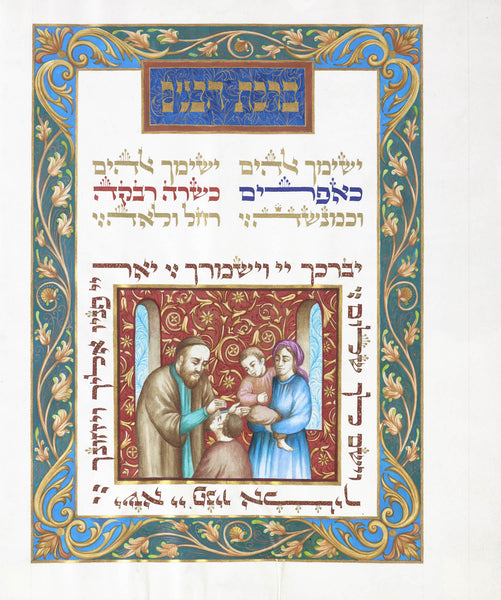 ברכת הבנים
ישימך אלהים
כאפרים
וכמנשה׃
ישימך אלהים
כשרה רבקה
רחל ולאה׃
יברכך יי וישמורך ׃ יאר
יי פניו אליך ויחונך ׃
ישא יי פניו אליך
וישם לך שלום ׃